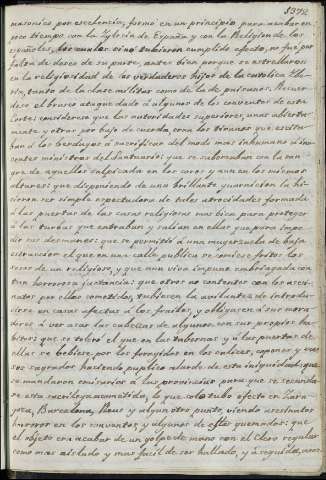 masonico, por escelencia, formó en un principio para acabar en
poco tiempo con la Iglesia de España y con la Religion de los
españoles, los cuales sino tubieron cumplido efecto, no fue por
falta de deseo de su parte, antes bien porque se estrellaron
en la religiosidad de los verdaderos hijos de la catolica Ibe-
ria, tanto de la clase militar como de la de paisanos. Recuer-
dese el brusco ataque dado á algunos de los conventos de esta
Corte: considerese que las autoridades superiores, unas abierta-
mente y otras por bajo de cuerda, eran los tiranos que escita-
ban á los berdugos á sacrificar del modo mas inhumano á ino-
centes ministros del santuario: que se saboreaban con la san-
gre de aquellos salpicada en los coros y aun en los mismos
altares: que disponiendo de una brillante guarnicion la hi-
cieron ser simple espectadora de tales atrocidades formada
á las puertas de las casas religiosas mas bien para proteger
á las turbas que entraban y salian en ellas que para impe-
dir sus desmanes: que se permitió á una mugerzuela de baja
estraccion el que en una calle publica se comiese fritos los
sesos de un religioso, y que aun viva impune embriagada con
tan horrorosa sustancia: que otros no contentos con los asesi-
natos por ellos cometidos, tubiesen la avilantez de introdu-
cirse en casas afectas á los frailes, y obligasen á sus mora-
dores á ver asar las cabezas de algunos con sus propios ha-
bitos: que se toleró el que en las tabernas y á las puertas de
ellas se bebiese por los foragidos en los calices, copones y va-
sos sagrados haciendo publico alarde de esta iniquidad: que
se mandaron emisarios á las provincias para que se secunda-
se este sacrilego cometido, lo que solo tubo efecto en Zara-
goza, Barcelona, Reus y algun otro punto, viendo asesinatos
horror en los conventos, y algunos de estos quemados: que
el objeto era acabar de un golpe de mano con el Clero regular
como mas aislado y mas facil de ser hallado, y á seguida